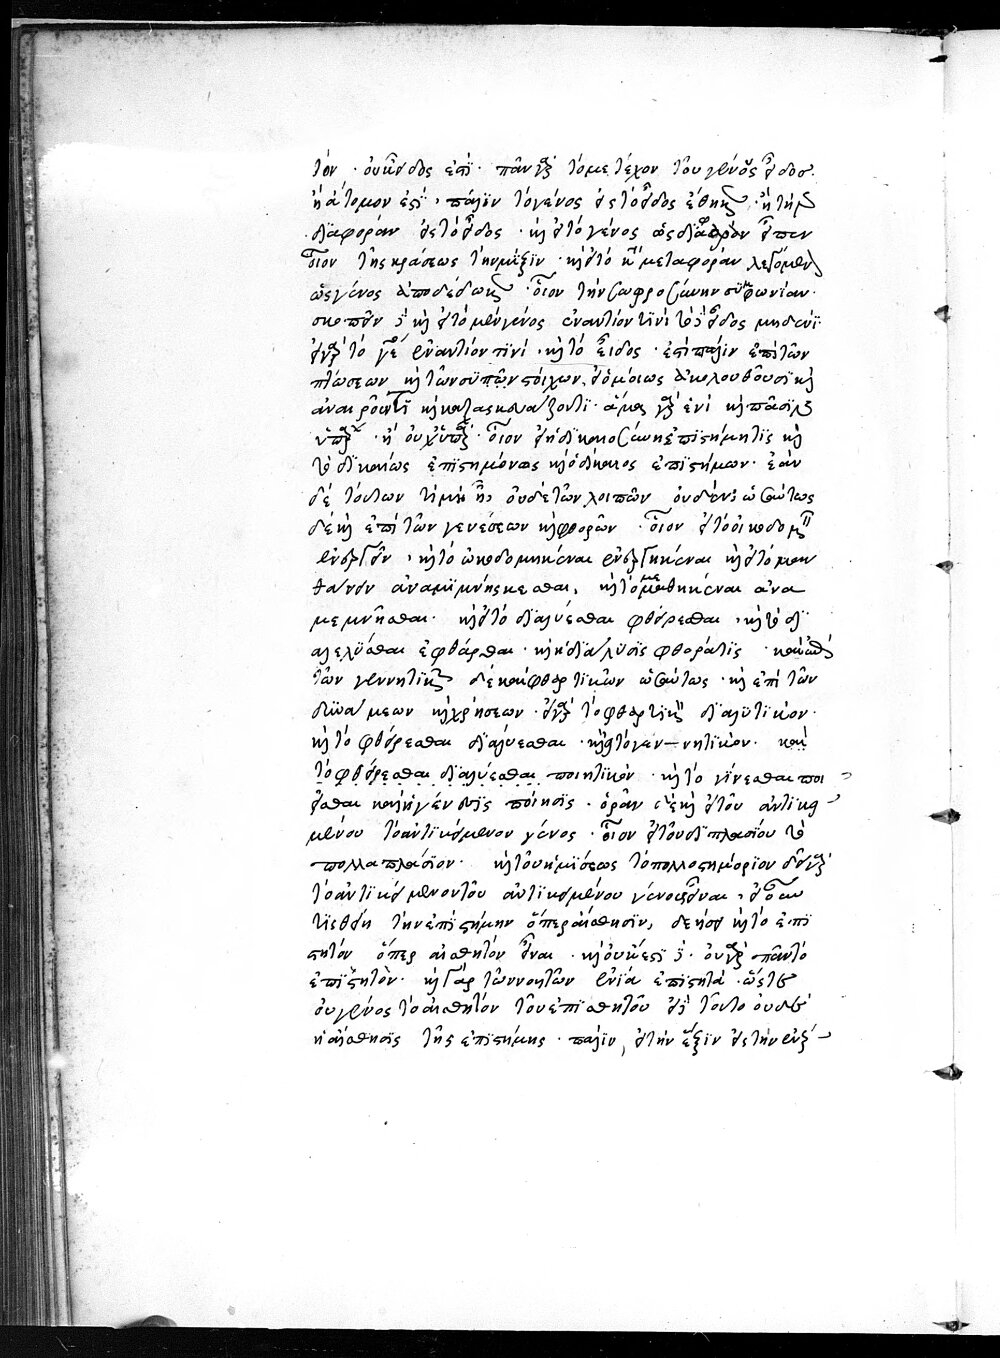 τὸν · οὐκ εἶδος ἐστί · πᾶν γὰρ τὸ μετέχον τοῦ γένους εἶδος
ἢ ἄτομον ἐστί · πάλιν τὸ γένος εἰς τὸ εἶδος ἔθηκεν · ἢ τὴν
διαφορὰν εἰς τὸ εἶδος · καὶ εἰ τὸ γένος ὡς διαφορὰν εἶπεν
οἷον τῆς κράσεως τὴν μίξιν · καὶ εἰ τὸ κατὰ μεταφορὰν λεγόμενον
ὡς γένος ἀποδέδωκεν · οἷον τὴν σωφροσύνην συμφωνίαν ·
σκοπεῖν δὲ καὶ εἰ τὸ μὲν γένος ἐναντίον τινὶ τὸ δὲ εἶδος μηδενί ·
εἰ γὰρ τὸ γένος ἐναντίον τινί · καὶ τὸ εἶδος · ἔτι πάλιν ἐπὶ τῶν
πτώσεων καὶ τῶν συστοίχων, εἰ ὁμοίως ἀκολουθοῦσι καὶ
ἀναιροῦντι καὶ κατασκευάζοντι · ἅμα γὰρ ἑνὶ καὶ πᾶσιν
ὑπάρχει · ἢ οὐχ ὑπάρχει · οἷον εἰ ἡ δικαιοσύνη ἐπιστήμη τις καὶ
τὸ δικαίως ἐπιστημόνως καὶ ὁ δίκαιος ἐπιστήμων · ἐὰν
δὲ τούτων τι μὴ ᾖ, οὐδὲ τῶν λοιπῶν οὐδέν · ὡσαύτως
δὲ καὶ ἐπὶ τῶν γενέσεων καὶ φθορῶν · οἷον εἰ τὸ οἰκοδομεῖν
ἐνεργεῖν, καὶ τὸ ᾠκοδομηκέναι ἐνηργηκέναι καὶ εἰ τὸ μαν
θάνειν ἀναμιμνήσκεσθαι, καὶ τὸ μεμαθηκέναι ἀνα
μεμνῆσθαι · καὶ εἰ τὸ διαλύεσθαι φθείρεσθαι · καὶ τὸ δι
αλελύσθαι ἐφθάρθαι · καὶ ἡ διάλυσις φθορά τις ·
τῶν γεννητικῶν δὲ καὶ φθαρτικῶν ὡσαύτως · καὶ ἐπὶ τῶν
δυνάμεων καὶ χρήσεων · εἰ γὰρ τὸ φθαρτικὸν διαλυτικὸν ·
καὶ τὸ φθείρεσθαι διαλύεσθαι · καὶ εἰ τὸ γεννητικὸν · καὶ
τὸ φθείρεσθαι διαλύεσθαι ποιητικὸν · καὶ τὸ γίνεσθαι ποι
εῖσθαι καὶ ἡ γένεσις ποίησις · ὁρᾶν δὲ καὶ εἰ τοῦ ἀντικει
μένου τὸ ἀντικείμενον γένος · οἷον εἰ τοῦ διπλασίου τὸ
πολλαπλάσιον · καὶ τοῦ ἡμίσεως τὸ πολλοστημόριον δεῖ γὰρ
τὸ ἀντικείμενον τοῦ ἀντικειμένου γένος εἶναι, εἰ οὖν
τις θείη τὴν ἐπιστήμην ὅπερ αἴσθησιν, δεήσει καὶ τὸ ἐπι
στητὸν ὅπερ αἰσθητὸν εἶναι · καὶ οὐκ ἔστι δέ · οὐ γὰρ πᾶν τὸ
ἐπιστητὸν · καὶ γὰρ τῶν νοητῶν ἔνια ἐπιστητά · ὥστε
οὐ γένος τὸ αἰσθητὸν τοῦ ἐπισθητοῦ εἰ δὲ τοῦτο οὐδὲ
ἡ αἴσθησις τῆς ἐπιστήμης · πάλιν, εἰ τὴν ἕξιν εἰς τὴν ἐνέρ